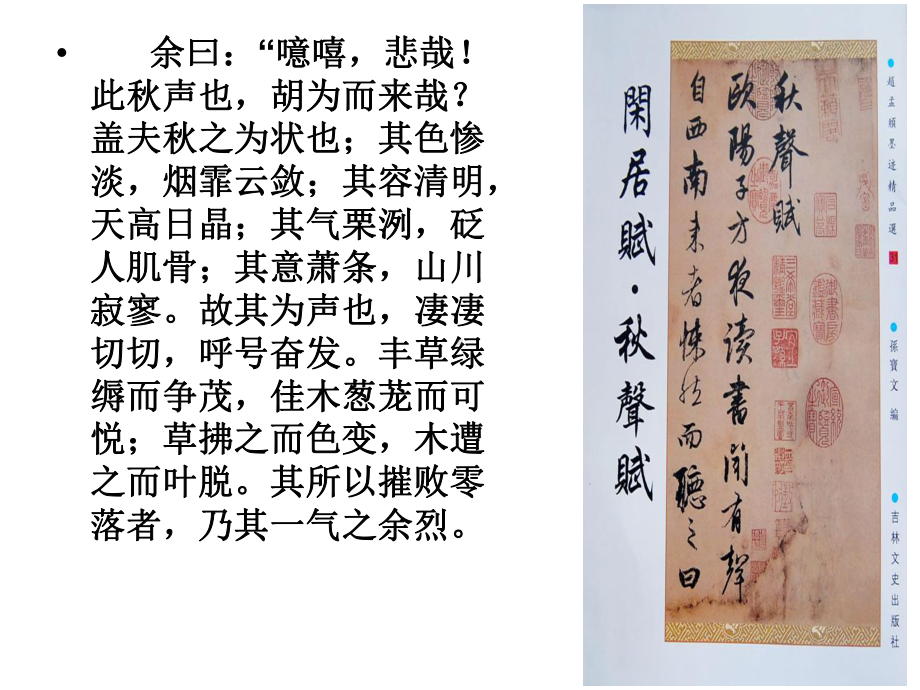 • 余曰：“噫嘻，悲哉！
此秋声也，胡为而来哉？
盖夫秋之为状也；其色惨
淡，烟霏云敛；其容清明，
天高日晶；其气栗冽，砭
人肌骨；其意萧条，山川
寂寥。故其为声也，凄凄
切切，呼号奋发。丰草绿
缛而争茂，佳木葱茏而可
悦；草拂之而色变，木遭
之而叶脱。其所以摧败零
落者，乃其一气之余烈。
趙孟頫墨迹精品選
孫寶文 編
吉林文史出版社
秋聲賦
歐陽子方夜讀書聞有聲
自西南来者悚然而聽之曰
閑居賦·秋聲賦